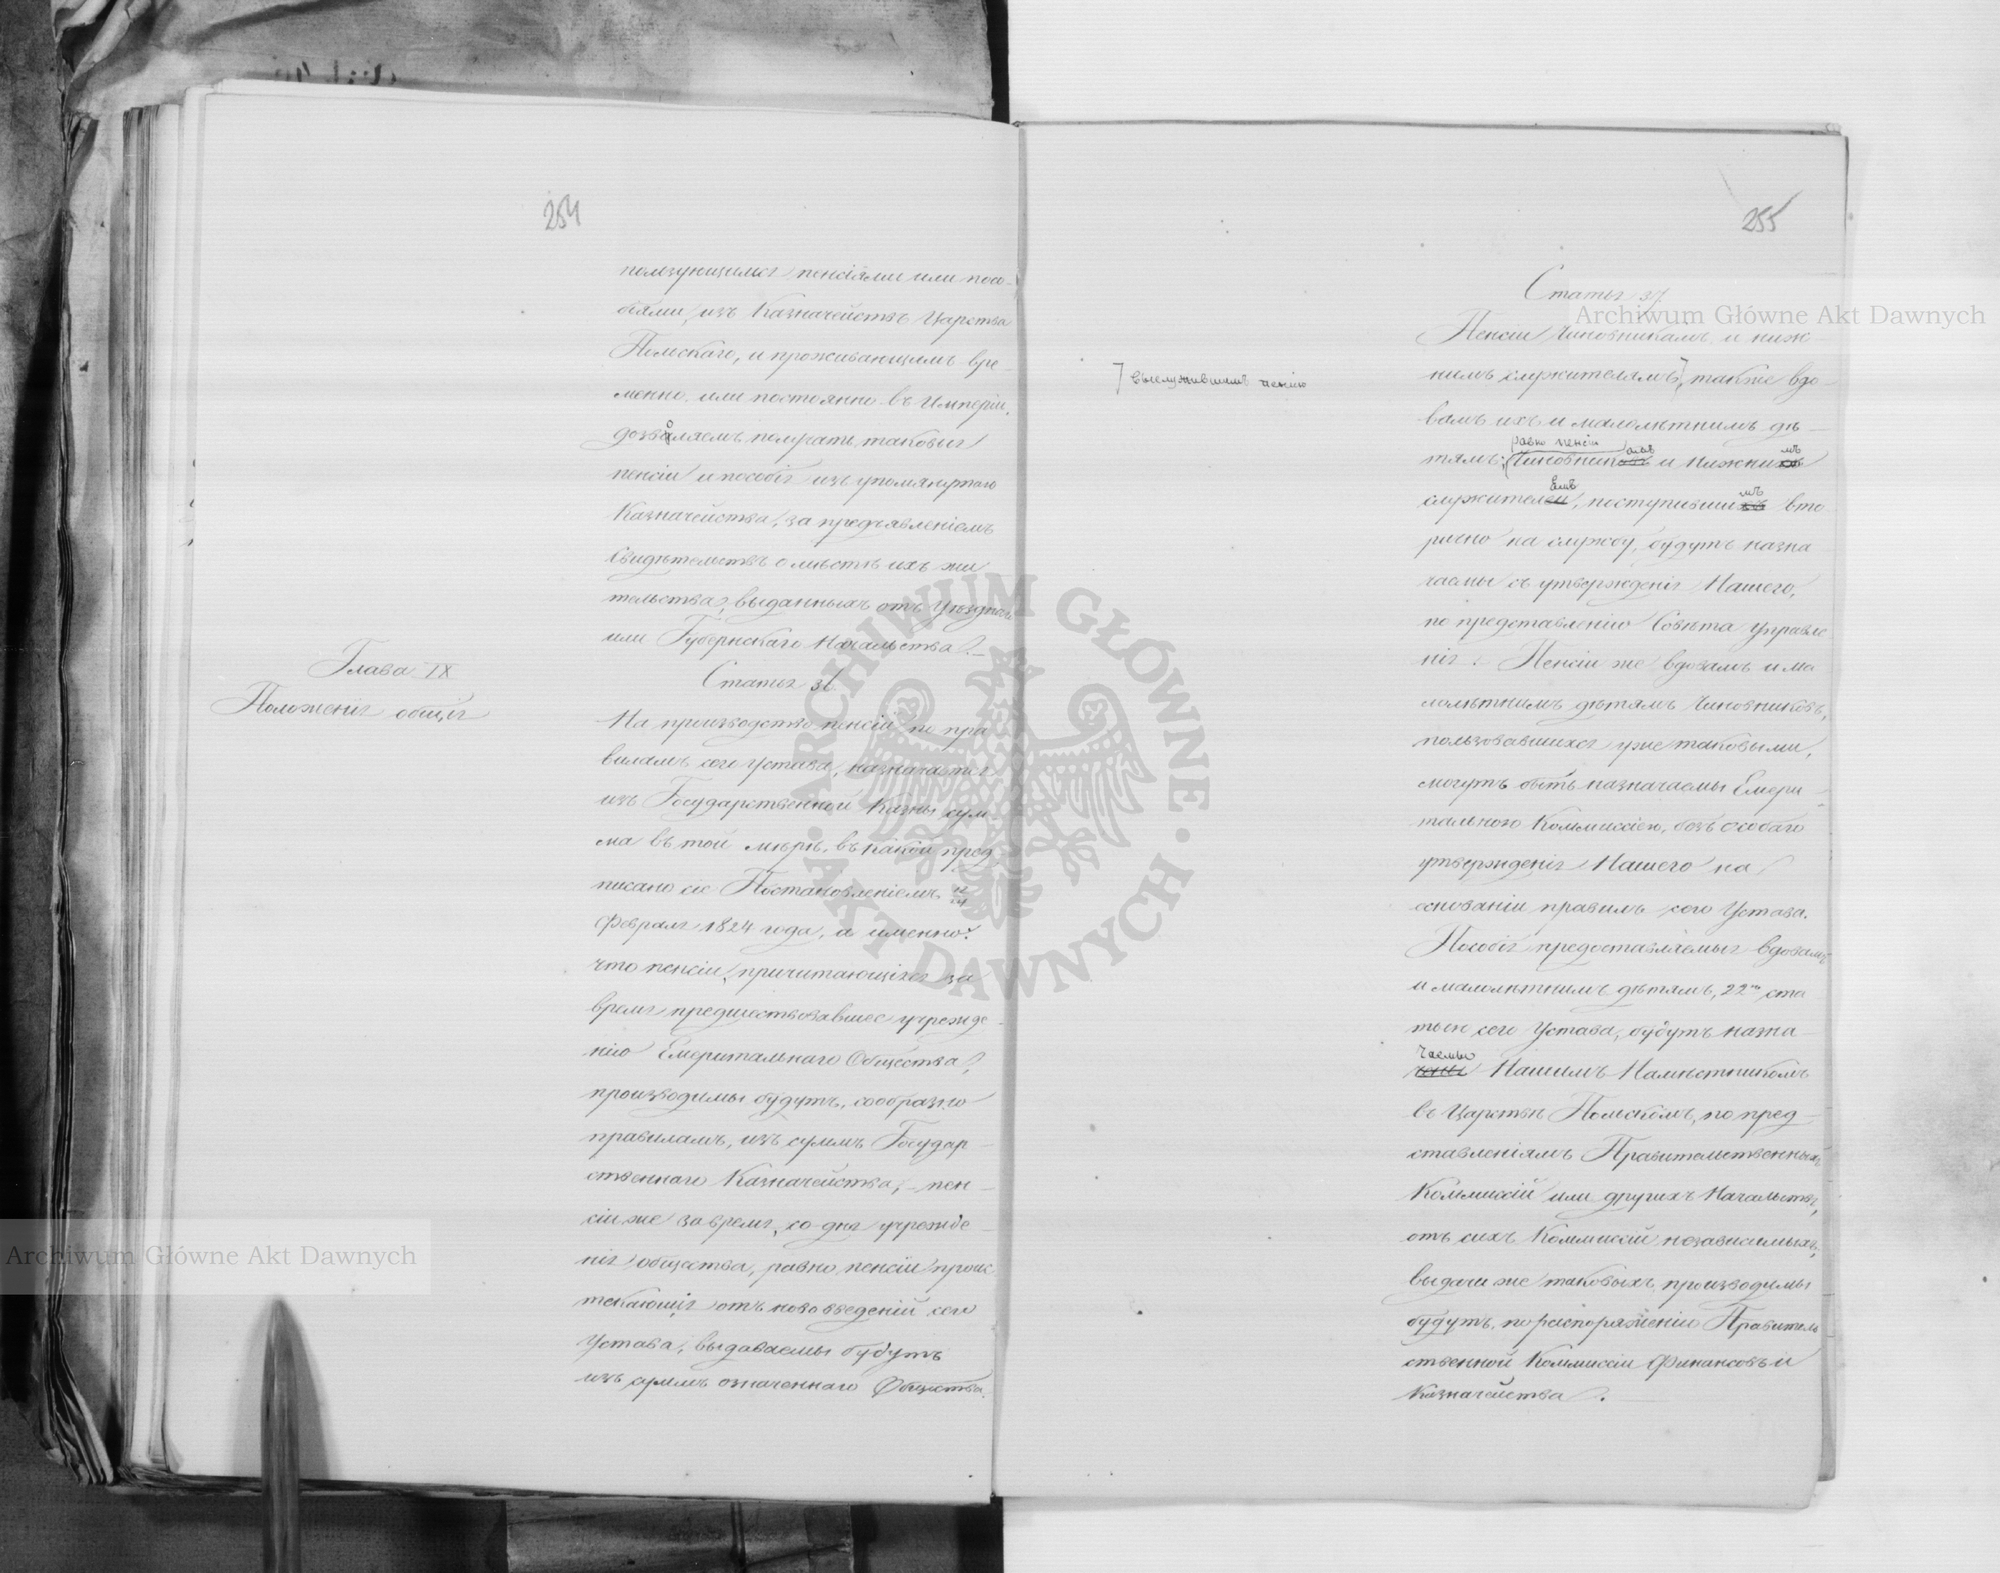 254
пользующимся пенсіями или посо-
біями, изъ Казначействъ Царства
Польскаго, и проживающимъ вре-
менно или постоянно въ Имперіи,
дозволяемъ получать таковыя
пенсіи и пособія изъ упомянутаго
Казначейства, за предъявленіемъ
свидѣтельствъ о мѣстѣ ихъ жи
тельства, выданныхъ отъ Уѣзднаго
или Губернскаго Начальства.
Глава IX
Положенія общія
Статья 36
На производство пенсій по пра
виламъ сего Устава, назначается
изъ Государственной Казны сум-
ма въ той мѣрѣ, въ какой пред
писано сіе Постановленіемъ 12/24
Февраля 1824 года, а именно:
что пенсіи, причитающіяся за
время предшествовавшее учрежде-
нію Емеритальнаго Общества,
производимы будутъ, сообразно
правиламъ, изъ суммъ Государ-
ственнаго Казначейства, - пен-
сіи же за время, со дня учрежде-
нія общества, равно пенсіи проис
текающія отъ нововведеній сего
Устава, выдаваемы будутъ
изъ суммъ означеннаго Общества.
255
Статья 37
Пенсіи Чиновникамъ и ниж-
нимъ служителямъ, также вдо-
выслужившимъ пенсію
вамъ ихъ и малолѣтнимъ дѣ-
равно пенсіи
тямъ; Чиновникамъ и нижнимъ
служителямъ, поступившимъ вто-
рично на службу, будутъ назна
чаемы съ утвержденія Нашего,
по представленію Совѣта Управле
нія. Пенсіи же вдовамъ и ма
лолѣтнимъ дѣтямъ Чиновниковъ,
пользовавшихся уже таковыми,
могутъ быть назначаемы Емери-
тальною Коммиссіею, безъ особаго
утвержденія Нашего на
основаніи правилъ сего Устава.
Пособія предоставляемыя вдовамъ
и малолѣтнимъ дѣтямъ, 22ю ста
тьею сего Устава, будутъ назна-
чаемы
Нашимъ Намѣстникомъ
въ Царствѣ Польскомъ, по пред-
ставленіямъ Правительственныхъ
Коммиссій или другихъ Начальствъ,
отъ сихъ Коммиссій независимыхъ,
выдачи же таковыхъ, производимы
будутъ, по распоряженію Правитель
ственной Коммиссіи Финансовъ и
Казначейства.
Archiwum Główne Akt Dawnych
Archiwum Główne Akt Dawnych
ARCHIWUM GŁÓWNE AKT DAWNYCH